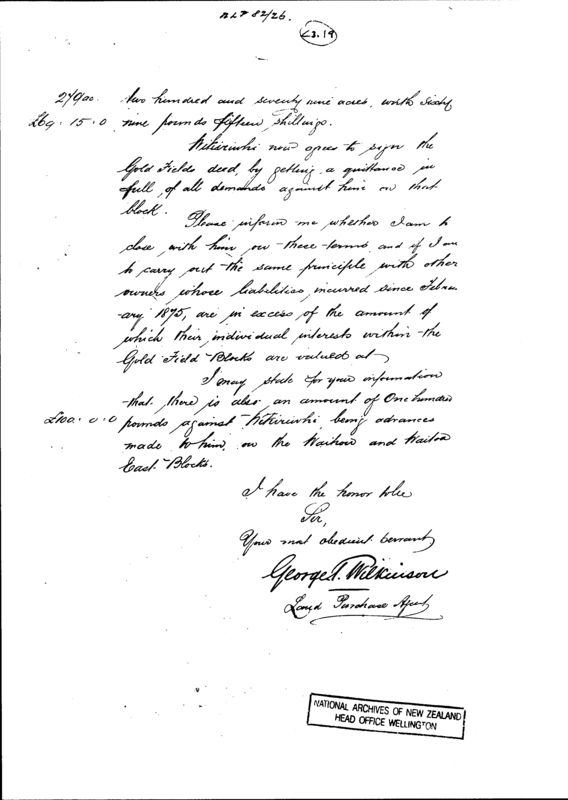 NLP 82/26.
C3.19
279ac. two hundred and seventy nine acres, worth Sixty
£69.15.0 nine pounds fifteen shillings.
now agrees to sign the
Gold Fields deed, by getting a quittance in
full, of all demands against him on that
block.
Please inform me whether I am to
close with him on these terms, and if I am
to carry out the same principle with other
owners whose liabilities, incurred since Febru
ary 1875, are in excess of the amount of
which their individual interests within the
Gold Field Blocks are valued at
I may state for your information
that there is also an amount of One hundred
£100.0.0 pounds against being advances
made to him on the Waihou and Waitoa
East Blocks.
I have the honor to be
Sir,
Your most obedient Servant
George T. Wilkinson
Land Purchase Agent
NATIONAL ARCHIVES OF NEW ZEALAND
HEAD OFFICE WELLINGTON